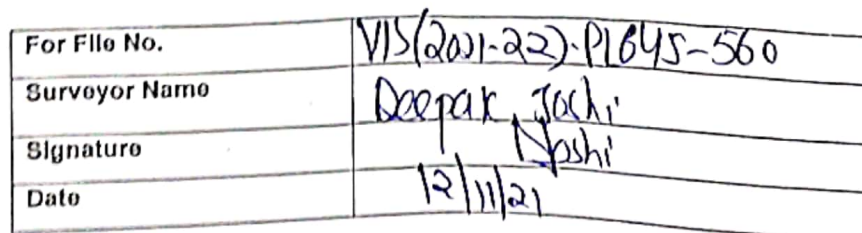 For File No. VIS(2021-22)-PL645-560
Surveyor Name Deepak Joshi
Signature Joshi
Date 12/11/21